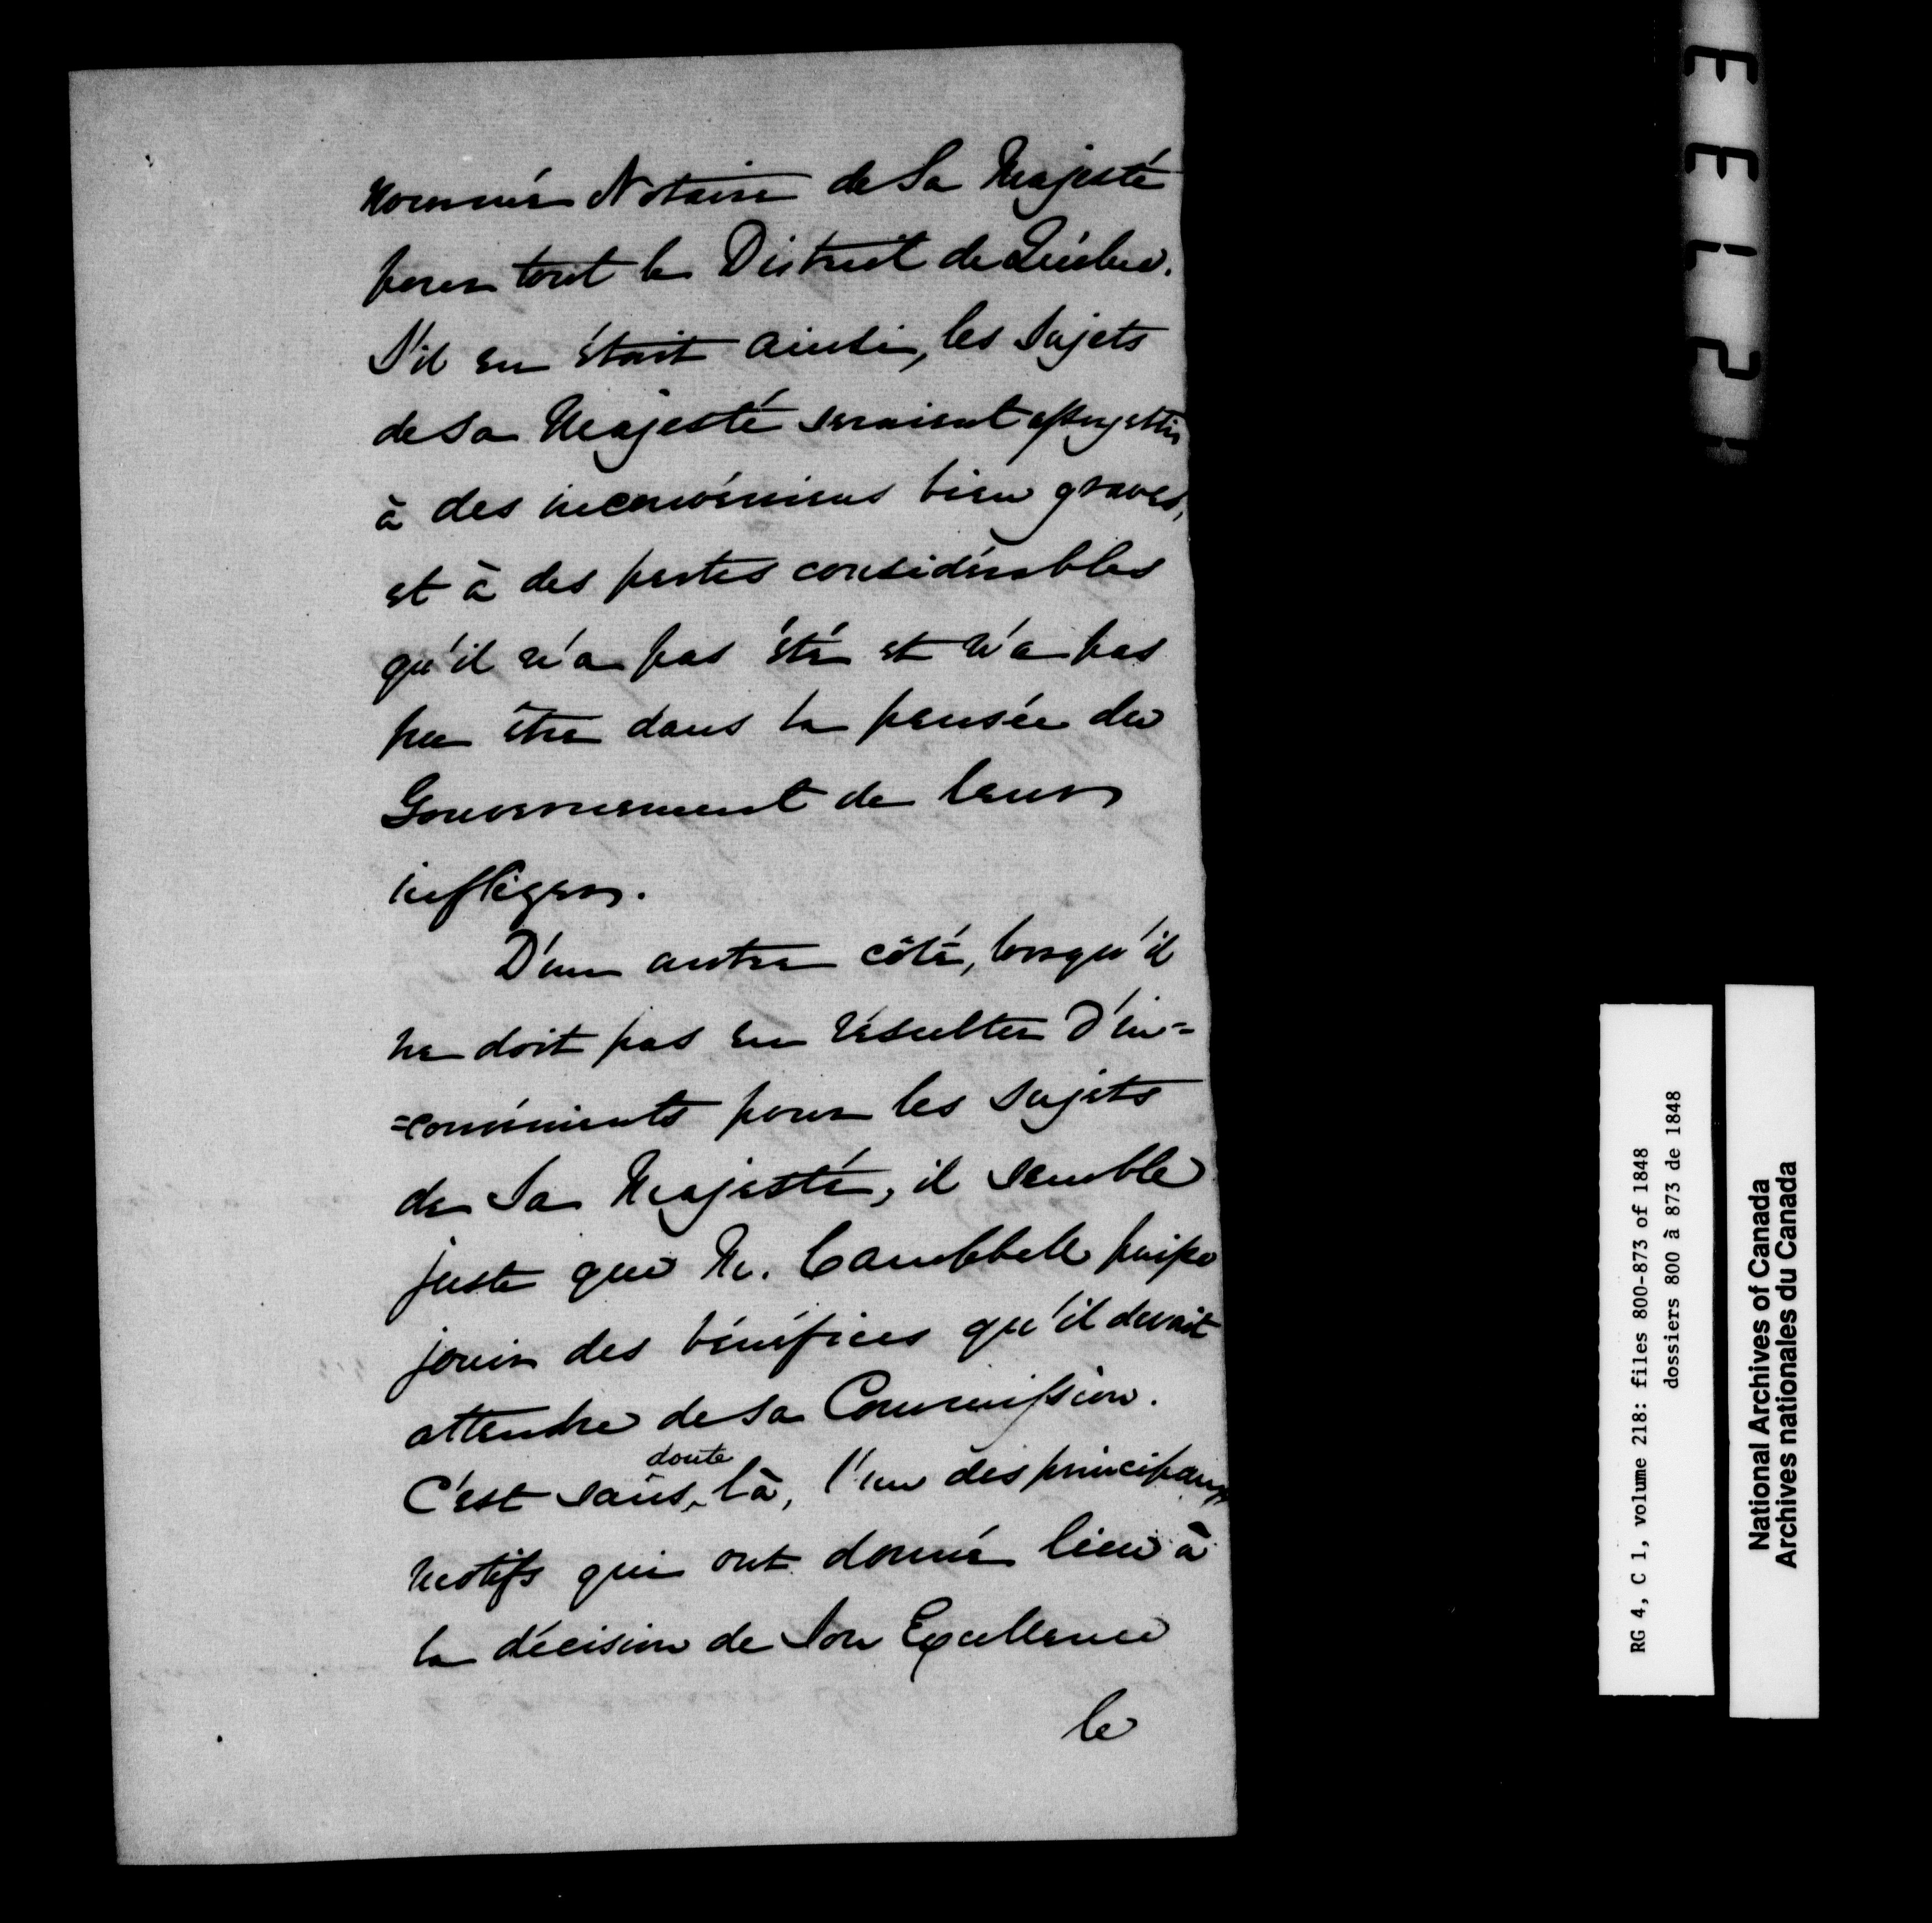 nommé Notaire de Sa Majesté
pour tout le District de Québec.
S'il en était ainsi, les Sujets
de Sa Majesté seraient assujettis
à des inconvéniens bien graves,
et à des pertes considérables
qu'il n'a pas été et n'a pas
pu être dans la pensée du
Gouvernement de leur
infliger.
D'un autre côté, lorsqu'il
ne doit pas en résulter d'in=
=convénients pour les Sujets
de Sa Majesté, il semble
juste que M. Campbell puisse
jouir des bénéfices qu'il devait
attendre de sa Commission.
C'est sans doute là, l'un des principaux
motifs qui ont donné lieu à
la décision de Son Excellence
le
RG 4, C 1, volume 218: files 800-873 of 1848
dossiers 800 à 873 de 1848
National Archives of Canada
Archives nationales du Canada